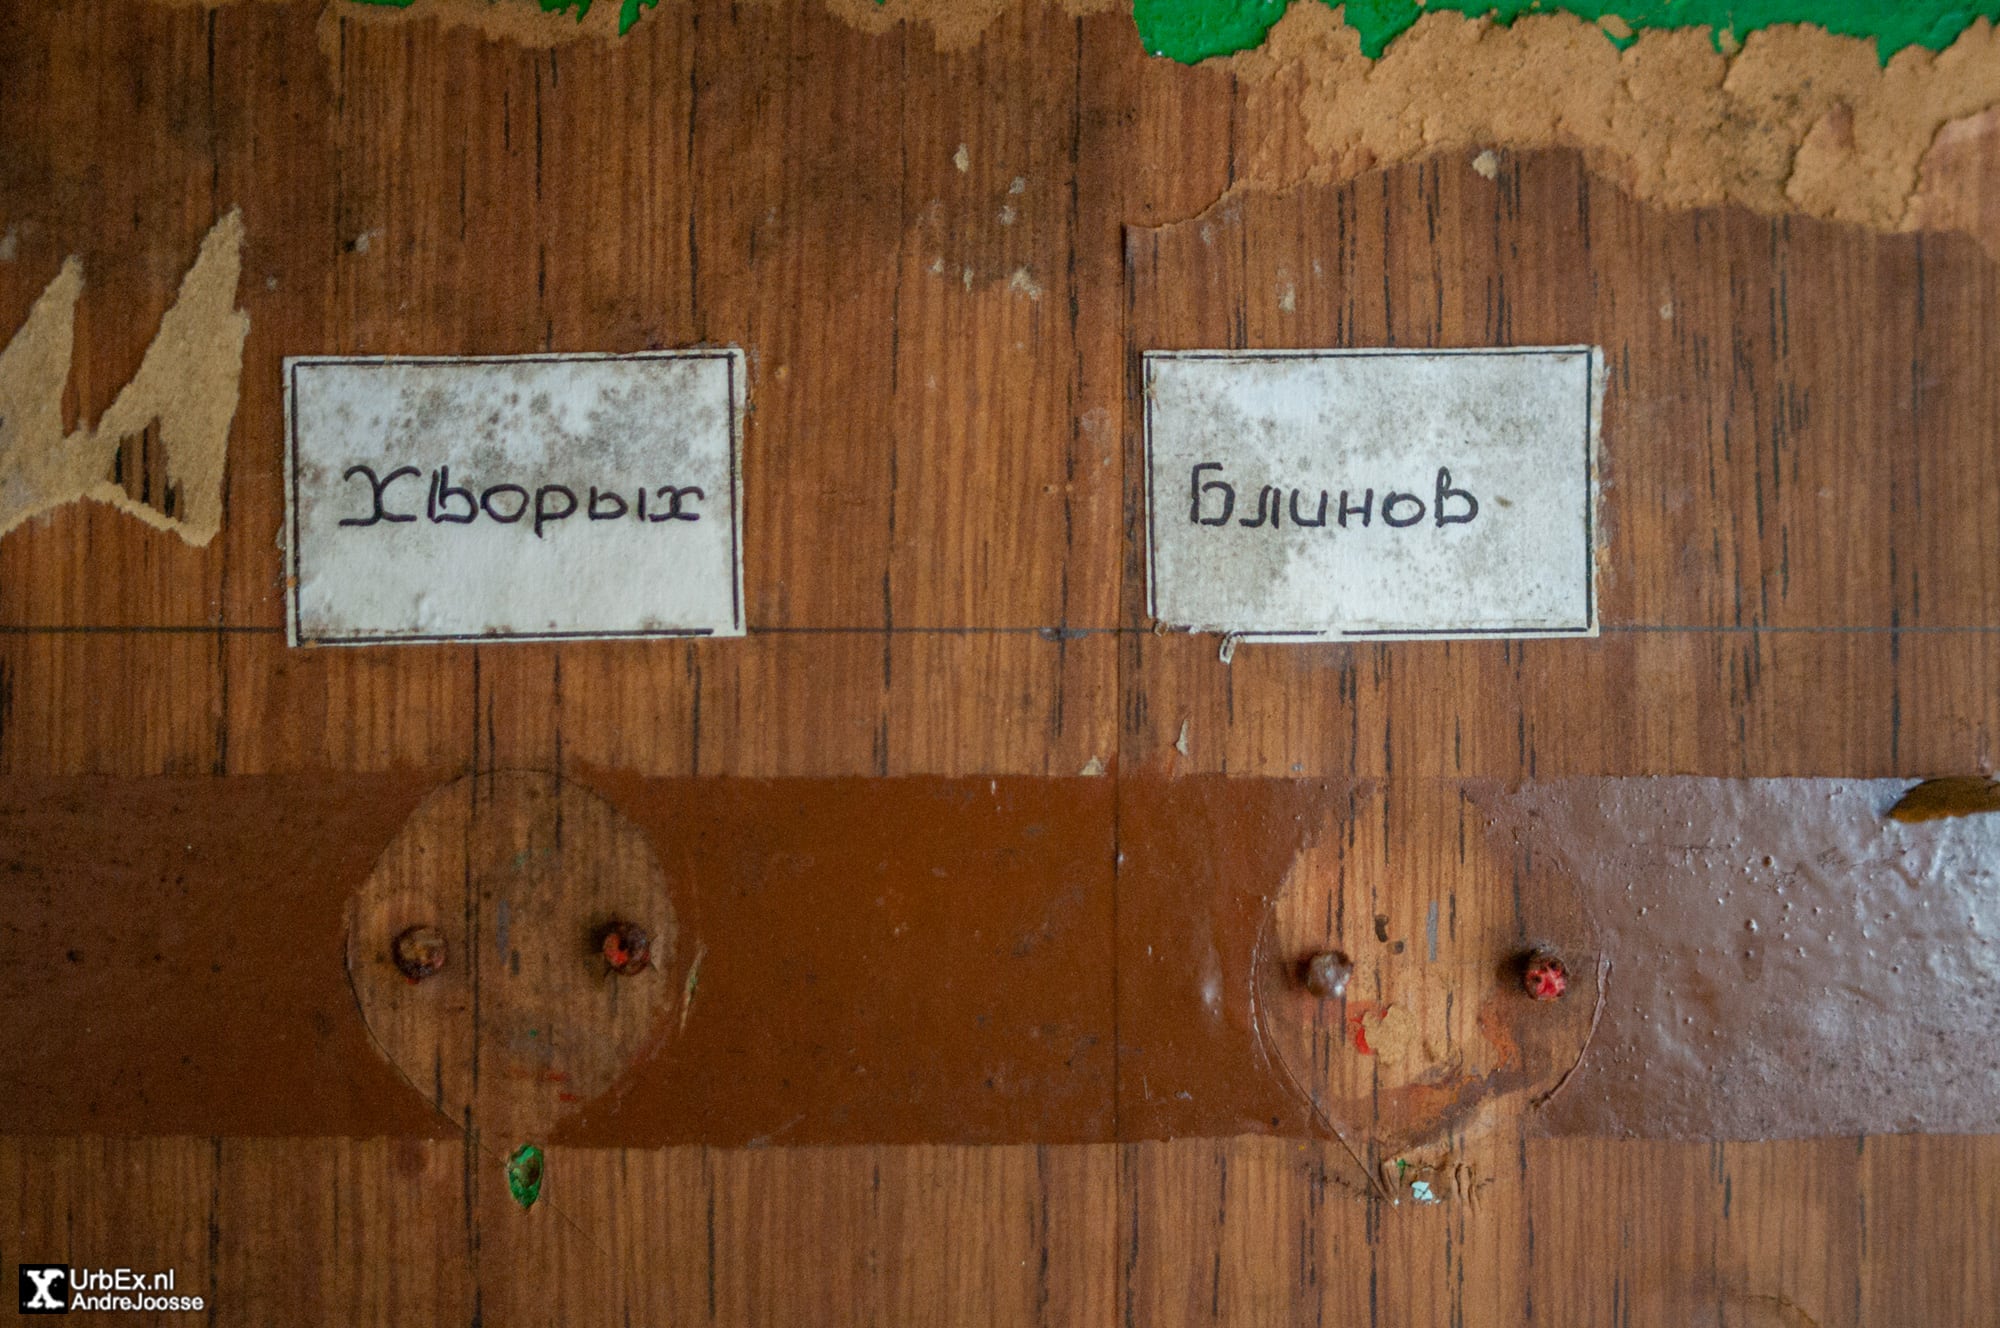 Хворых
Блинов
X UrbEx.nl
AndreJoosse